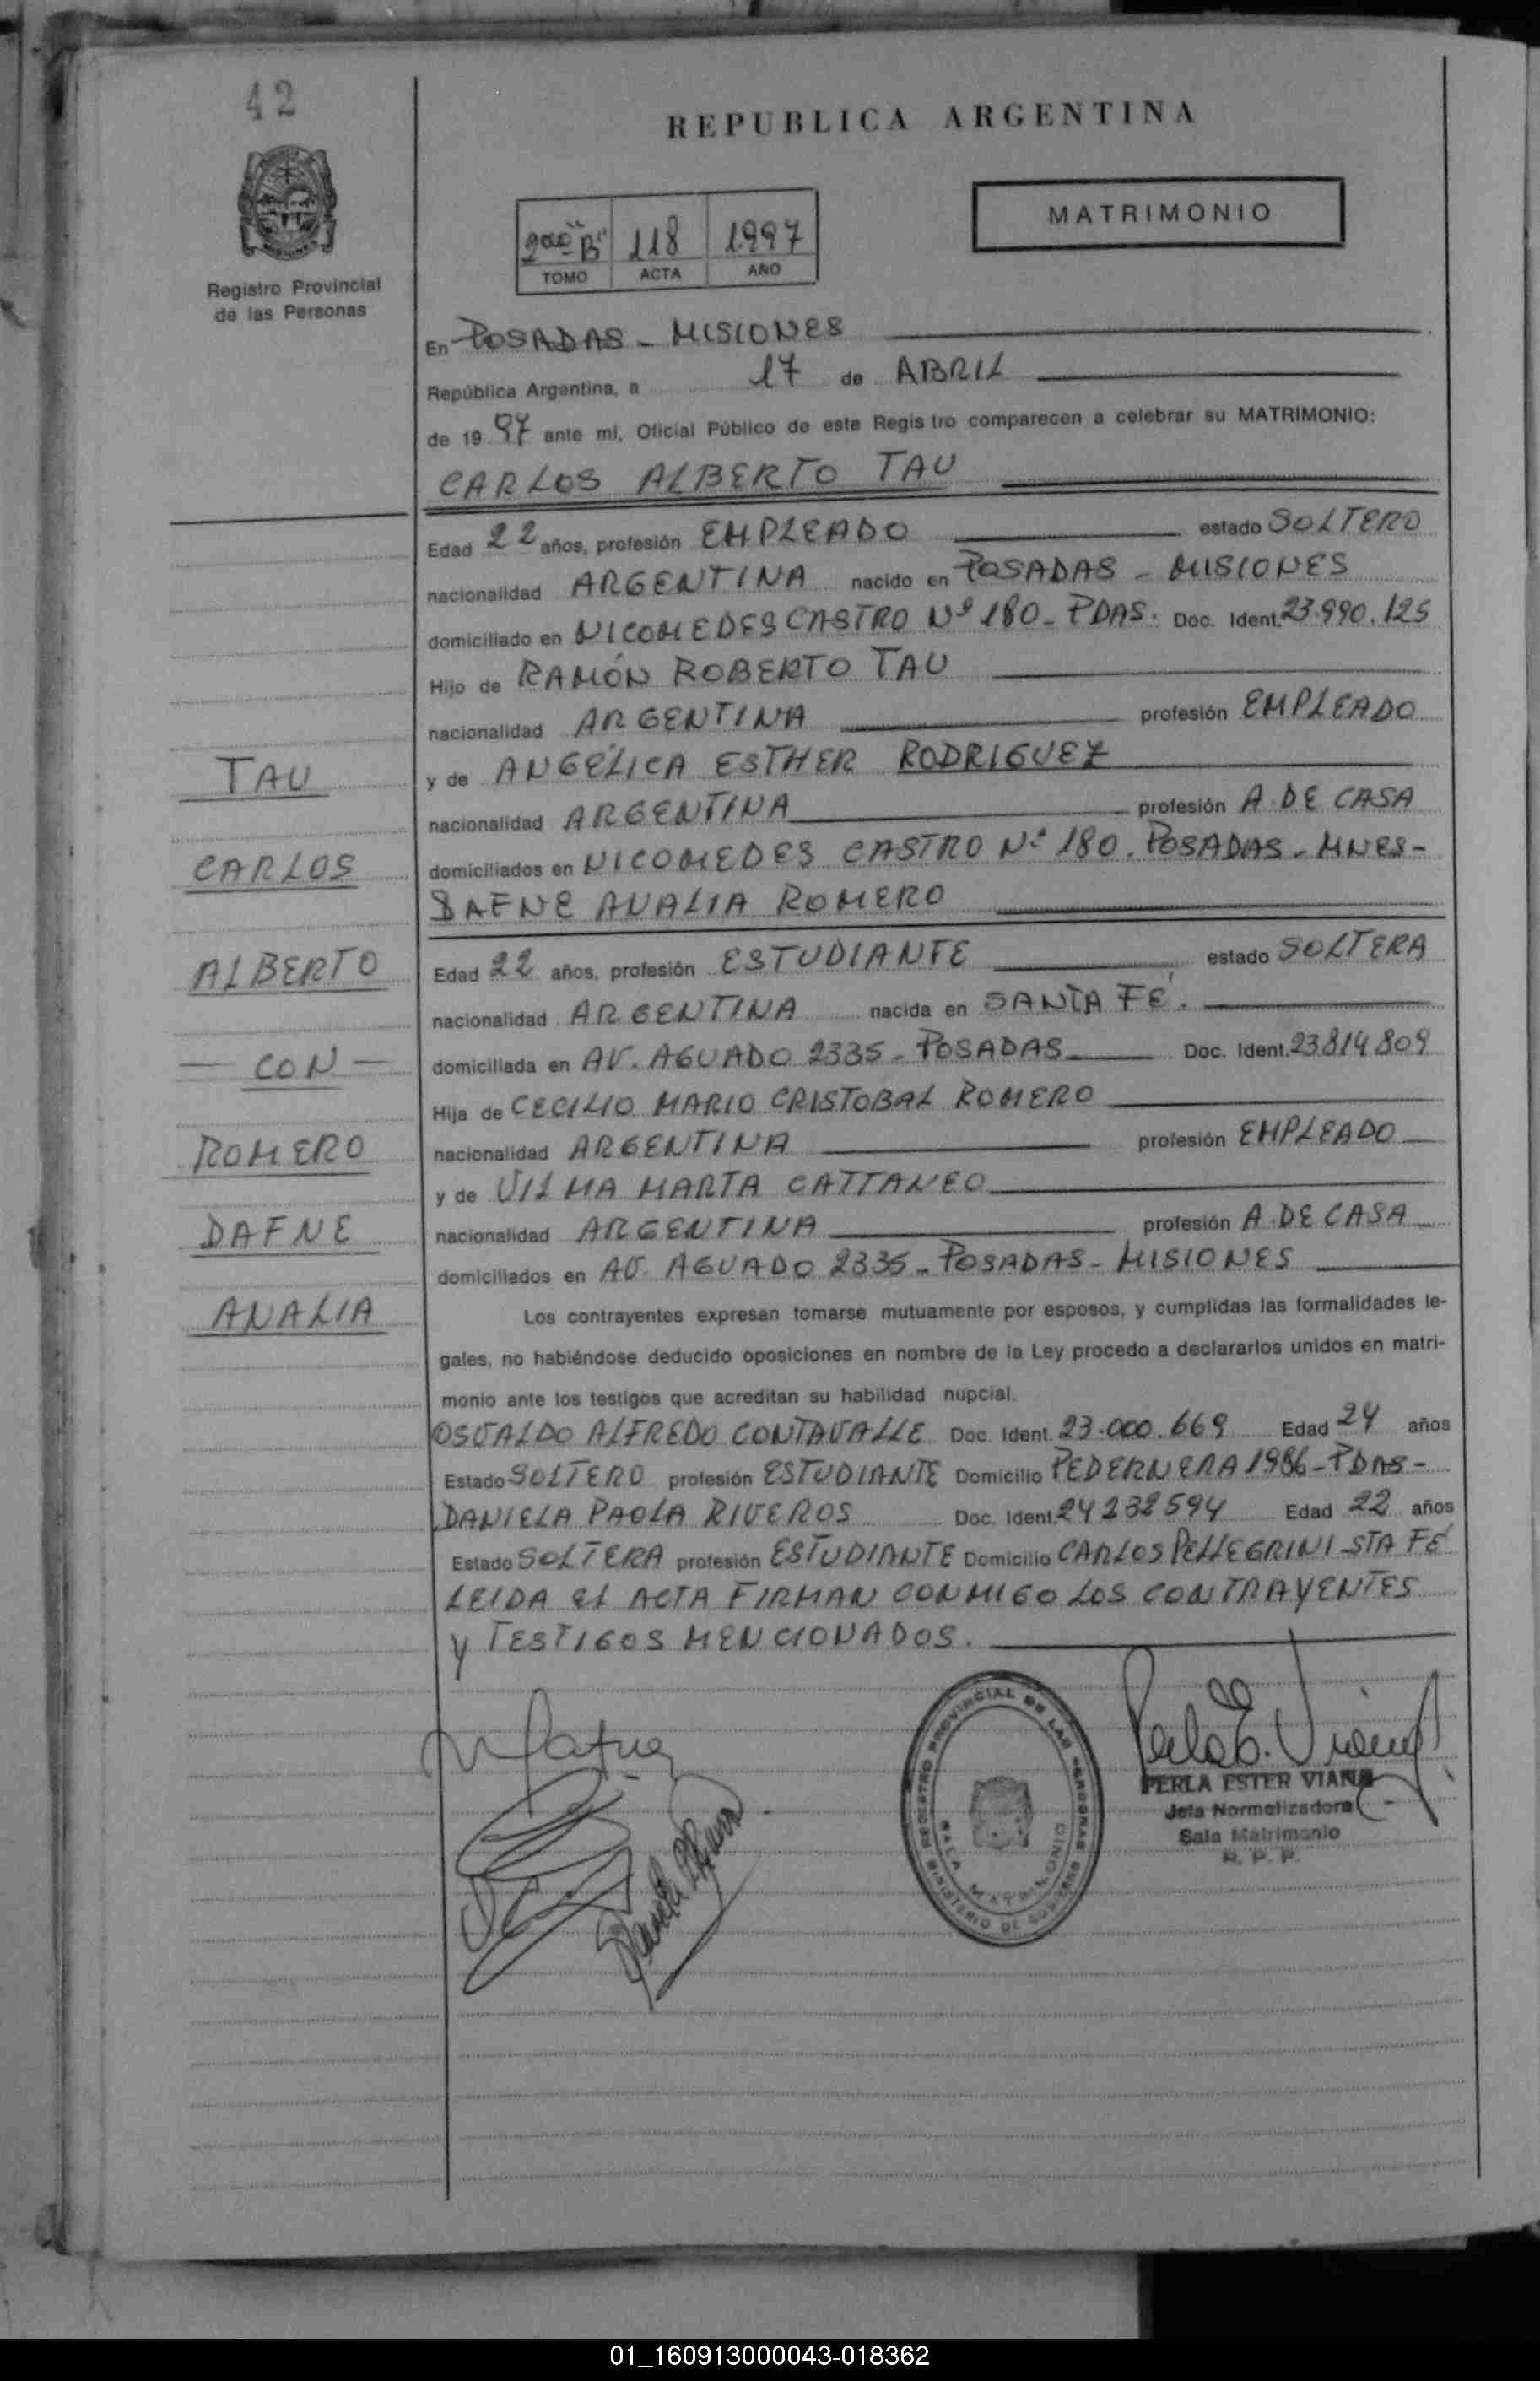 42
REPUBLICA ARGENTINA
MATRIMONIO
2do "B" 118 1997
TOMO ACTA AÑO
Registro Provincial
de las Personas
En POSADAS - MISIONES
República Argentina, a 17 de ABRIL
de 19 97 ante mí, Oficial Público de este Regis tro comparecen a celebrar su MATRIMONIO:
CARLOS ALBERTO TAU
Edad 22 años, profesión EMPLEADO estado SOLTERO
nacionalidad ARGENTINA nacido en POSADAS - MISIONES
domiciliado en NICOMEDES CASTRO Nº 180 - PDAS. Doc. Ident. 23.990.125
Hijo de RAMÓN ROBERTO TAU
nacionalidad ARGENTINA profesión EMPLEADO
y de ANGÉLICA ESTHER RODRIGUEZ
nacionalidad ARGENTINA profesión A. DE CASA
domiciliados en NICOMEDES CASTRO Nº 180. POSADAS - MNES-
DAFNE ANALIA ROMERO
Edad 22 años, profesión ESTUDIANTE estado SOLTERA
nacionalidad ARGENTINA nacida en SANTA FÉ.
domiciliada en AV. AGUADO 2335 - POSADAS Doc. Ident. 23814809
Hija de CECILIO MARIO CRISTOBAL ROMERO
nacionalidad ARGENTINA profesión EMPLEADO
y de VILMA MARTA CATTANEO
nacionalidad ARGENTINA profesión A. DE CASA
domiciliados en AV. AGUADO 2335 - POSADAS - MISIONES
Los contrayentes expresan tomarse mutuamente por esposos, y cumplidas las formalidades le-
gales, no habiéndose deducido oposiciones en nombre de la Ley procedo a declararlos unidos en matri-
monio ante los testigos que acreditan su habilidad nupcial.
OSVALDO ALFREDO CONTAVALLE Doc. Ident. 23.000.669 Edad 24 años
Estado SOLTERO profesión ESTUDIANTE Domicilio PEDERNERA 1986 - PDAS -
DANIELA PAOLA RIVEROS Doc. Ident. 24232594 Edad 22 años
Estado SOLTERA profesión ESTUDIANTE Domicilio CARLOS PELLEGRINI STA FÉ
LEIDA EL ACTA FIRMAN CONMIGO LOS CONTRAYENTES
Y TESTIGOS MENCIONADOS.
TAU
CARLOS
ALBERTO
- CON -
ROMERO
DAFNE
ANALIA
REGISTRO PROVINCIAL DE LAS PERSONAS
SALA MATRIMONIO
MINISTERIO DE GOBIERNO
PERLA ESTER VIANA
Jefa Normalizadora
Sala Matrimonio
R. P. P.
01_160913000043-018362